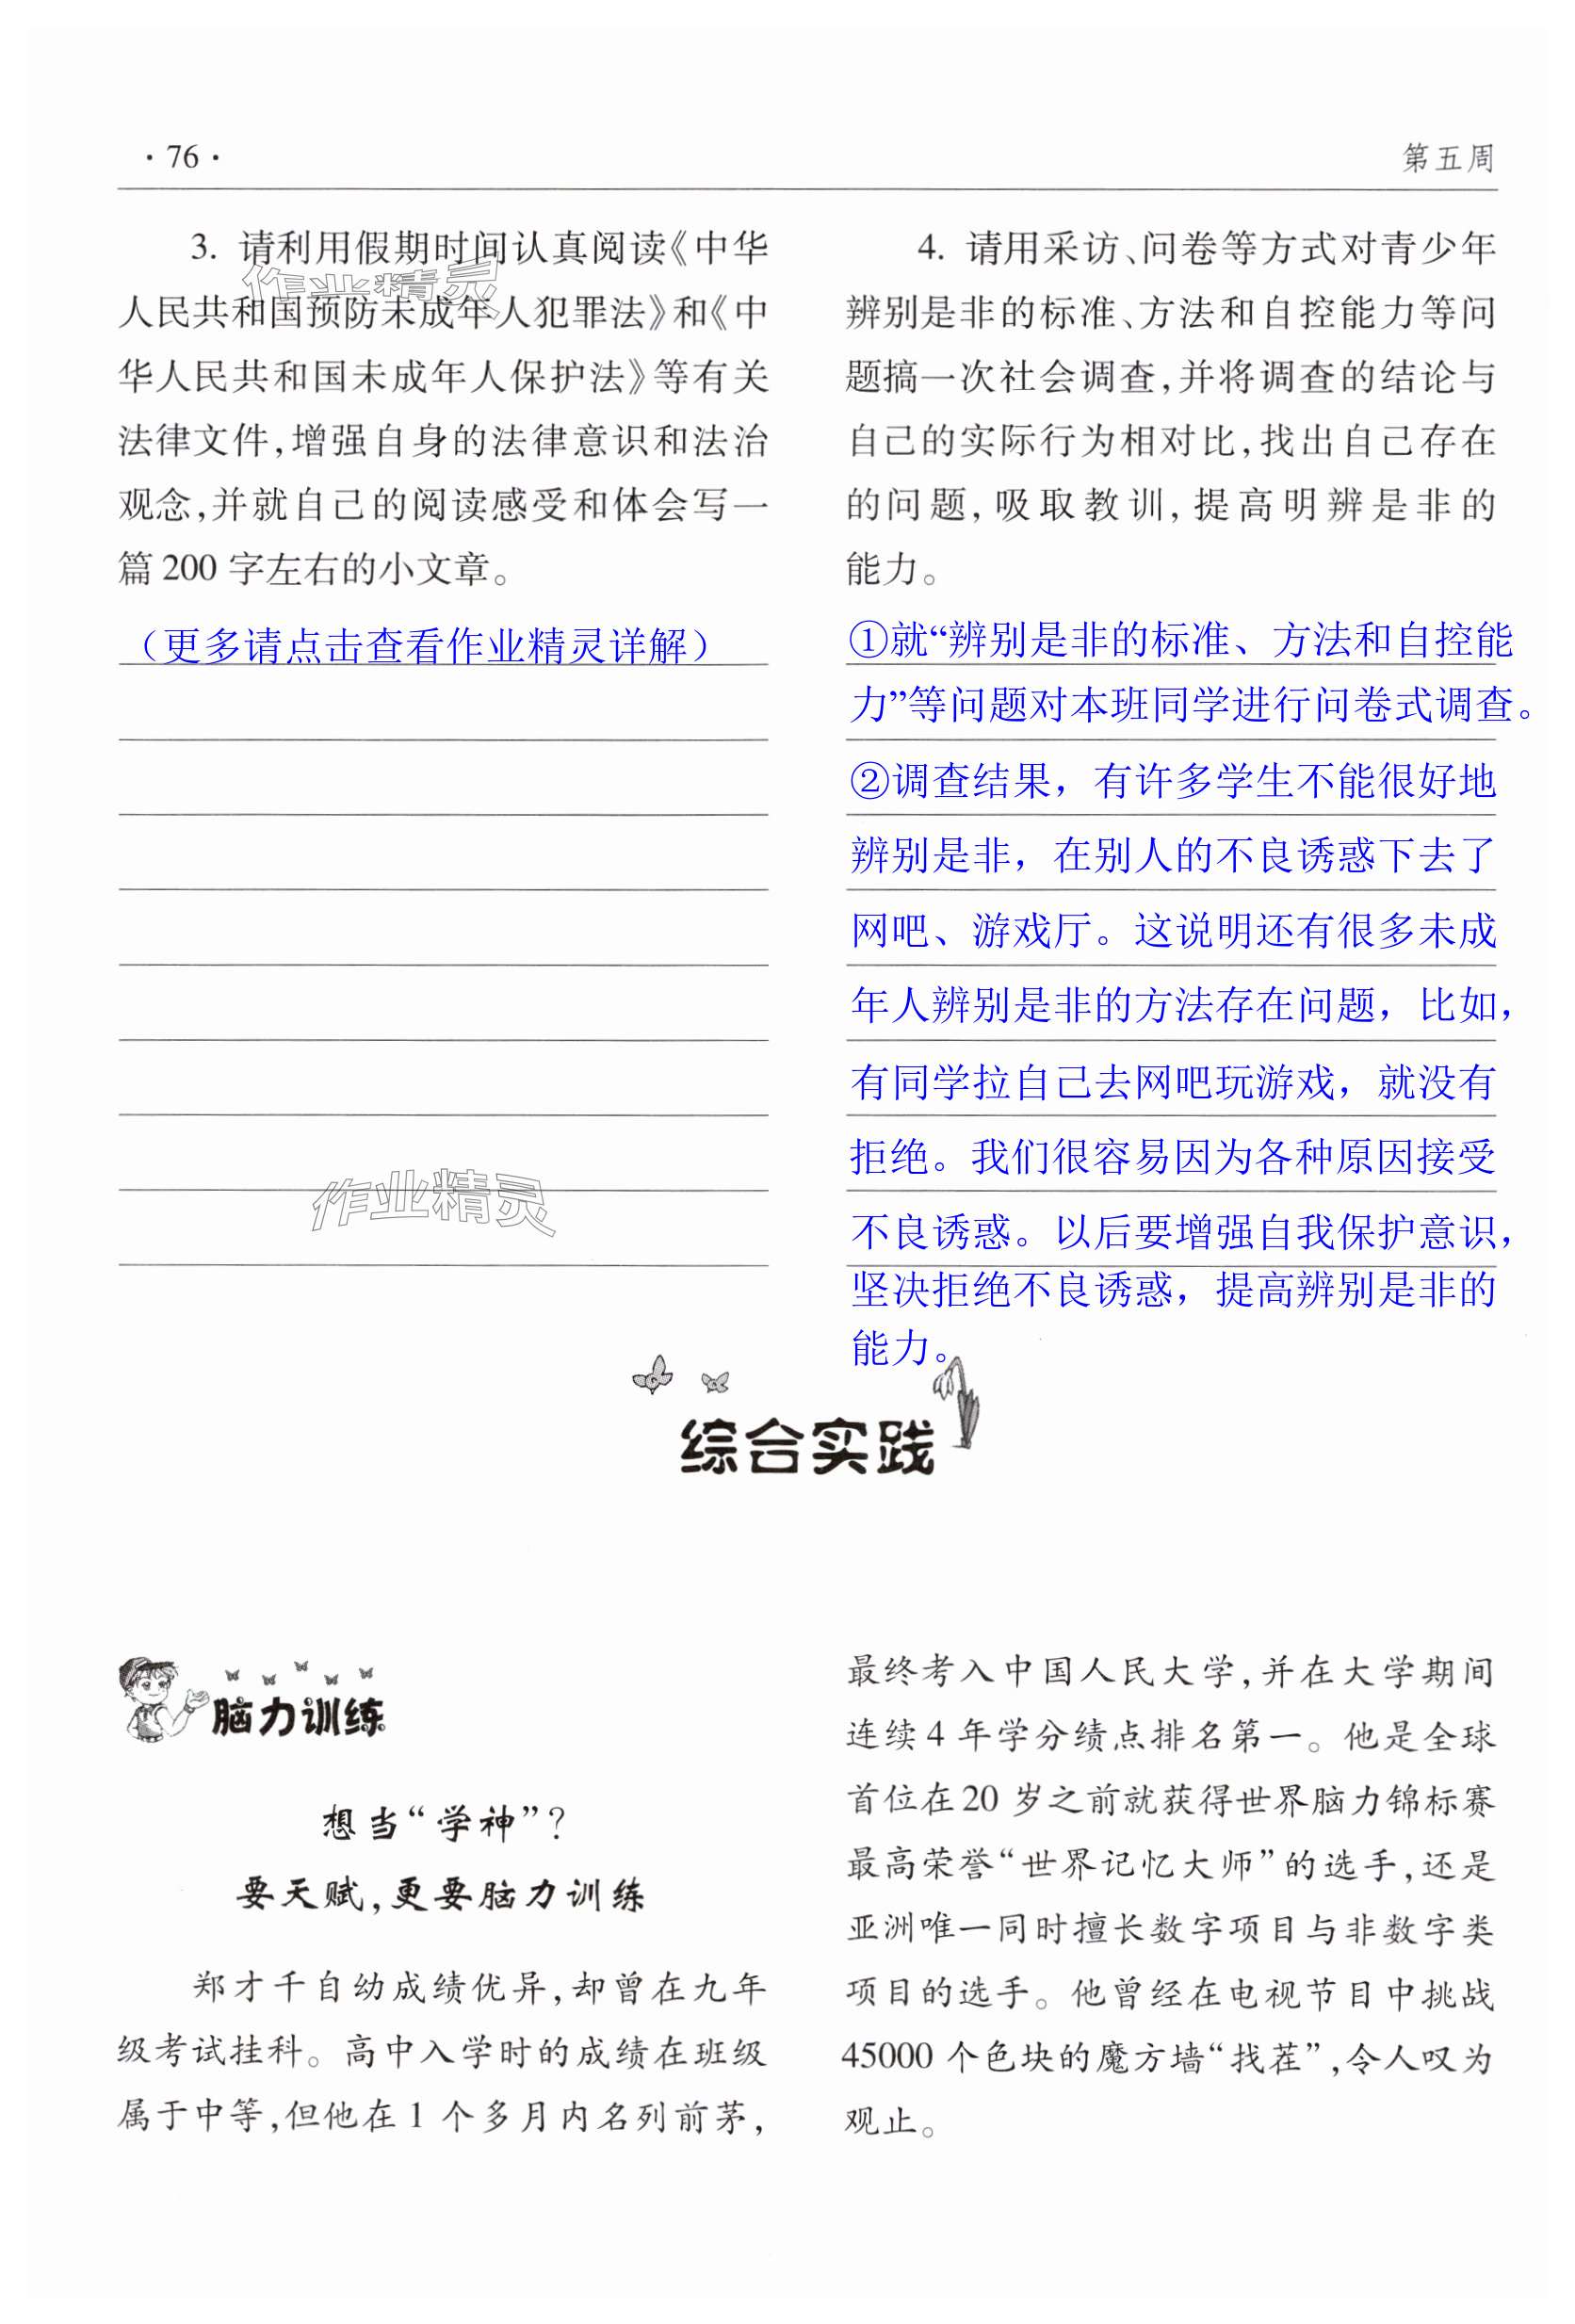 ·76·
第五周
3. 请利用假期时间认真阅读《中华
人民共和国预防未成年人犯罪法》和《中
华人民共和国未成年人保护法》等有关
法律文件,增强自身的法律意识和法治
观念,并就自己的阅读感受和体会写一
篇 200 字左右的小文章。
作业精灵
（更多请点击查看作业精灵详解）
作业精灵
4. 请用采访、问卷等方式对青少年
辨别是非的标准、方法和自控能力等问
题搞一次社会调查,并将调查的结论与
自己的实际行为相对比,找出自己存在
的问题,吸取教训,提高明辨是非的
能力。
①就“辨别是非的标准、方法和自控能
力”等问题对本班同学进行问卷式调查。
②调查结果，有许多学生不能很好地
辨别是非，在别人的不良诱惑下去了
网吧、游戏厅。这说明还有很多未成
年人辨别是非的方法存在问题，比如，
有同学拉自己去网吧玩游戏，就没有
拒绝。我们很容易因为各种原因接受
不良诱惑。以后要增强自我保护意识，
坚决拒绝不良诱惑，提高辨别是非的
能力。
综合实践
脑力训练
想当“学神”?
要天赋,更要脑力训练
郑才千自幼成绩优异,却曾在九年
级考试挂科。高中入学时的成绩在班级
属于中等,但他在 1 个多月内名列前茅,
最终考入中国人民大学,并在大学期间
连续 4 年学分绩点排名第一。他是全球
首位在 20 岁之前就获得世界脑力锦标赛
最高荣誉“世界记忆大师”的选手,还是
亚洲唯一同时擅长数字项目与非数字类
项目的选手。他曾经在电视节目中挑战
45000 个色块的魔方墙“找茬”,令人叹为
观止。